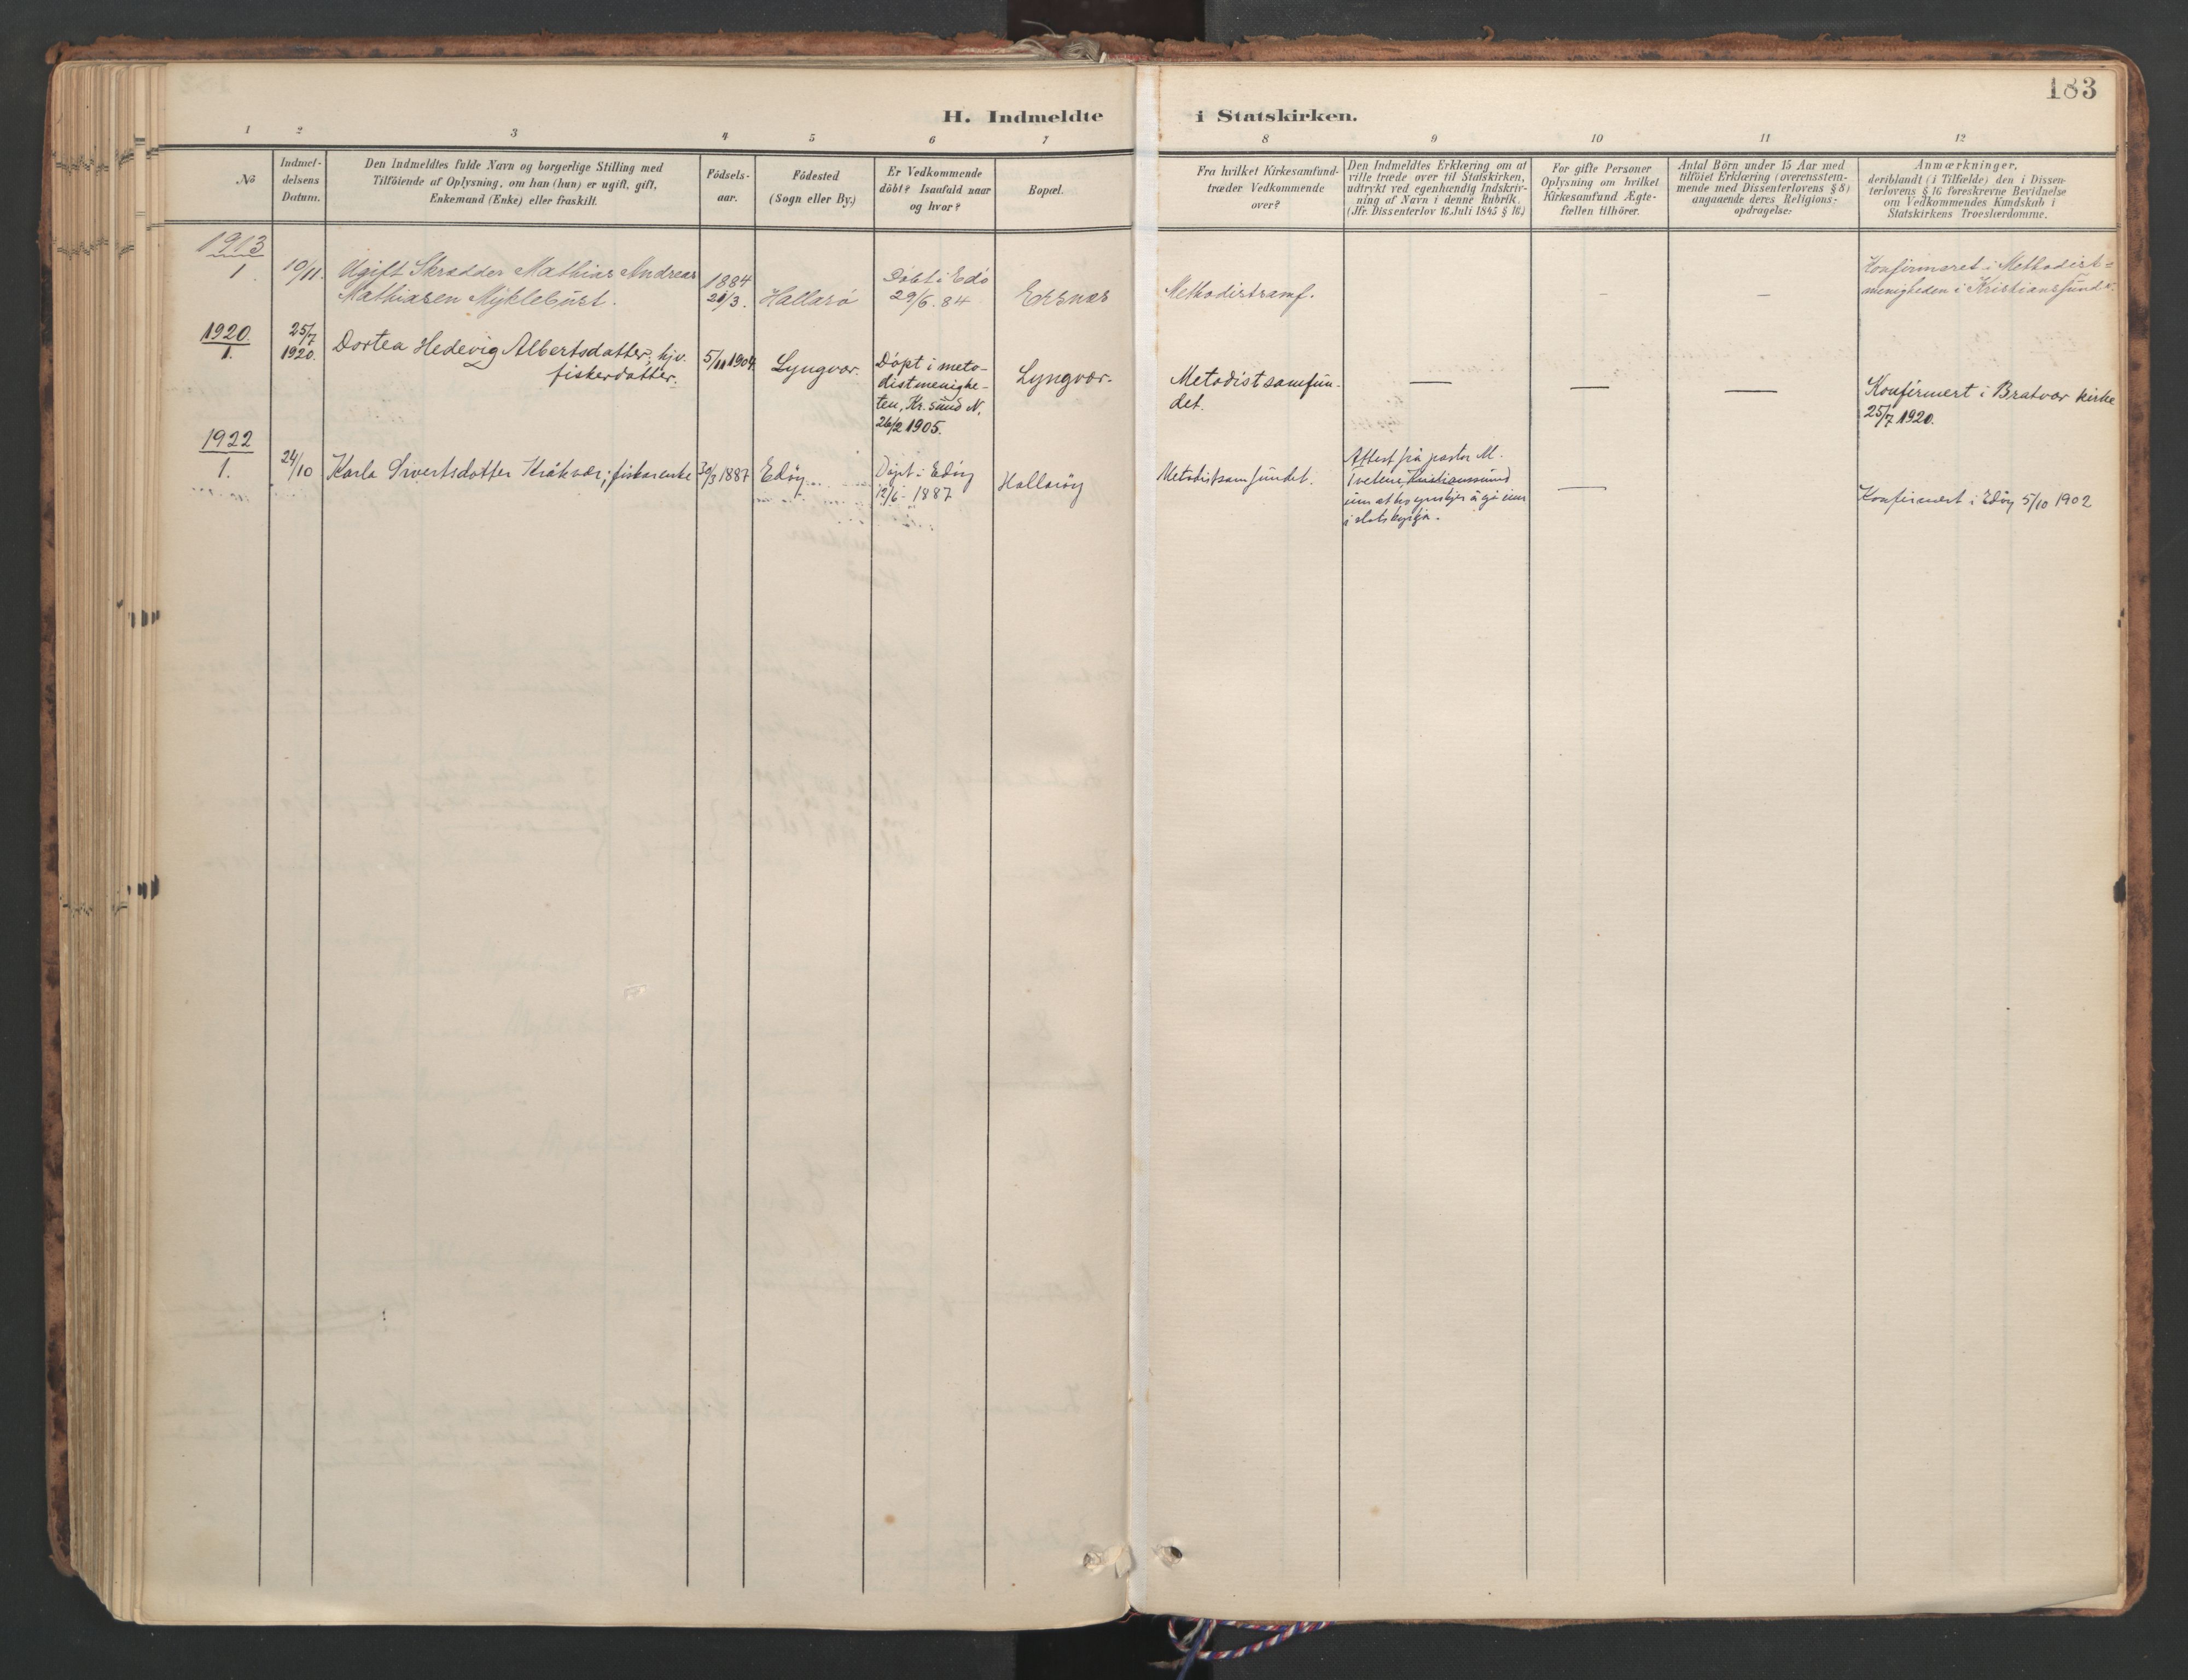 183
H. Indmeldte i Statskirken.
1 2 3 4 5 6 7 8 9 10 11 12
No
Indmel-
delsens
Datum.
Den Indmeldtes fulde Navn og borgerlige Stilling med
Tilföiende af Oplysning, om han (hun) er ugift, gift,
Enkemand (Enke) eller fraskilt.
Födsels-
aar.
Födested
(Sogn eller By.)
Er Vedkommende
döbt? Isaafald naar
og hvor?
Bopæl.
Fra hvilket Kirkesamfund
træder Vedkommende
over?
Den Indmeldtes Erklæring om at
ville træde over til Statskirken,
udtrykt ved egenhændig Indskriv-
ning af Navn i denne Rubrik.
(Jfr. Dissenterlov 16. Juli 1845 § 16.)
For gifte Personer
Oplysning om hvilket
Kirkesamfund Ægte-
fællen tilhörer.
Antal Börn under 15 Aar med
tilföiet Erklæring (overensstem-
mende med Dissenterlovens § 8)
angaaende deres Religions-
opdragelse:
Anmærkninger,
deriblandt (i Tilfælde) den i Dissen-
terlovens § 16 foreskrevne Bevidnelse
om Vedkommendes Kundskab i
Statskirkens Troeslærdomme.
1913
1.
10/11.
Ugift Skrædder Mathias Andreas
Mathiasen Myklebust.
1884
21/3.
Hallarö
Döbt i Edö
29/6. 84
Ersnes
Methodistsamf.
—
—
Konfirmeret i Methodist=
menigheden i Kristianssund N.
1920.
1.
25/7
1920.
Dortea Hedevig Albertsdatter, hjv.
fiskerdatter.
5/11 1904.
Lyngvær.
Döpt i meto-
distmenighe-
ten, Kr.sund N.
26/2 1905.
Lyngvær.
Metodistsamfun-
det.
—
—
—
Konfirmert i Bratvær kirke
25/7 1920.
1922
1.
24/10
Karla Sivertsdotter Kråkvær; fiskarenke
30/3 1887
Edöy
Döpt i Edöy
12/6 - 1887
Hallaröy
Metodistsamfundet.
Attest frå pastor M.
Tvetene, Kristianssund
um at ho ynskjer å gå inn
i statskyrkja.
—
Konfirmert i Edöy 5/10 1902